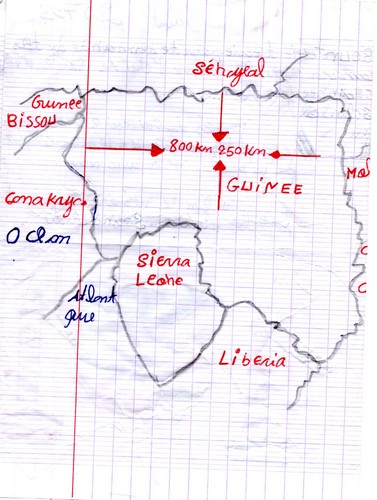 Sénégal
Guinee
BISSOU
800 km 250 km
GUINEE
conakry
Ocean
Atlant
que
Sierra
Leone
Liberia